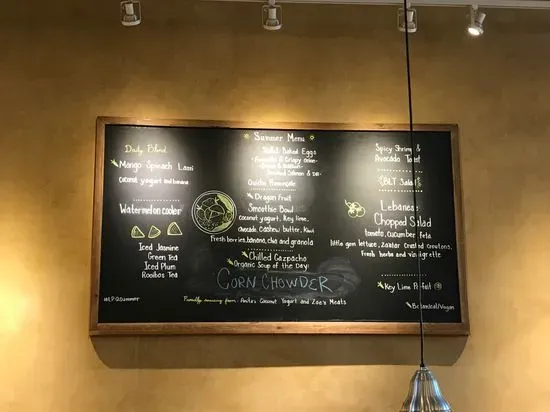 Daily Blend
Mango Spinach Lassi
coconut yogurt and banana
Watermelon cooler
Iced Jasmine
Green Tea
Iced Plum
Rooibos Tea
#LPQSummer
Summer Menu
Baked Eggs
Smoked Salmon & Dill
Quiche
Dragon Fruit
Smoothie Bowl
coconut yogurt, Key lime,
avocado, cashew butter, Kiwi
Fresh berries, banana, chia and granola
Chilled Gazpacho
Organic Soup of the Day:
CORN CHOWDER
Proudly sourcing from: Anita's Coconut Yogurt and Zoe's Meats
Spicy Shrimp &
Avocado Toast
BLT Salad
Lebanese
Chopped Salad
tomato, cucumber, feta
little gem lettuce, zaatar crusted croutons,
fresh herbs and vinaigrette
Key Lime Parfait
Botanical/Vegan